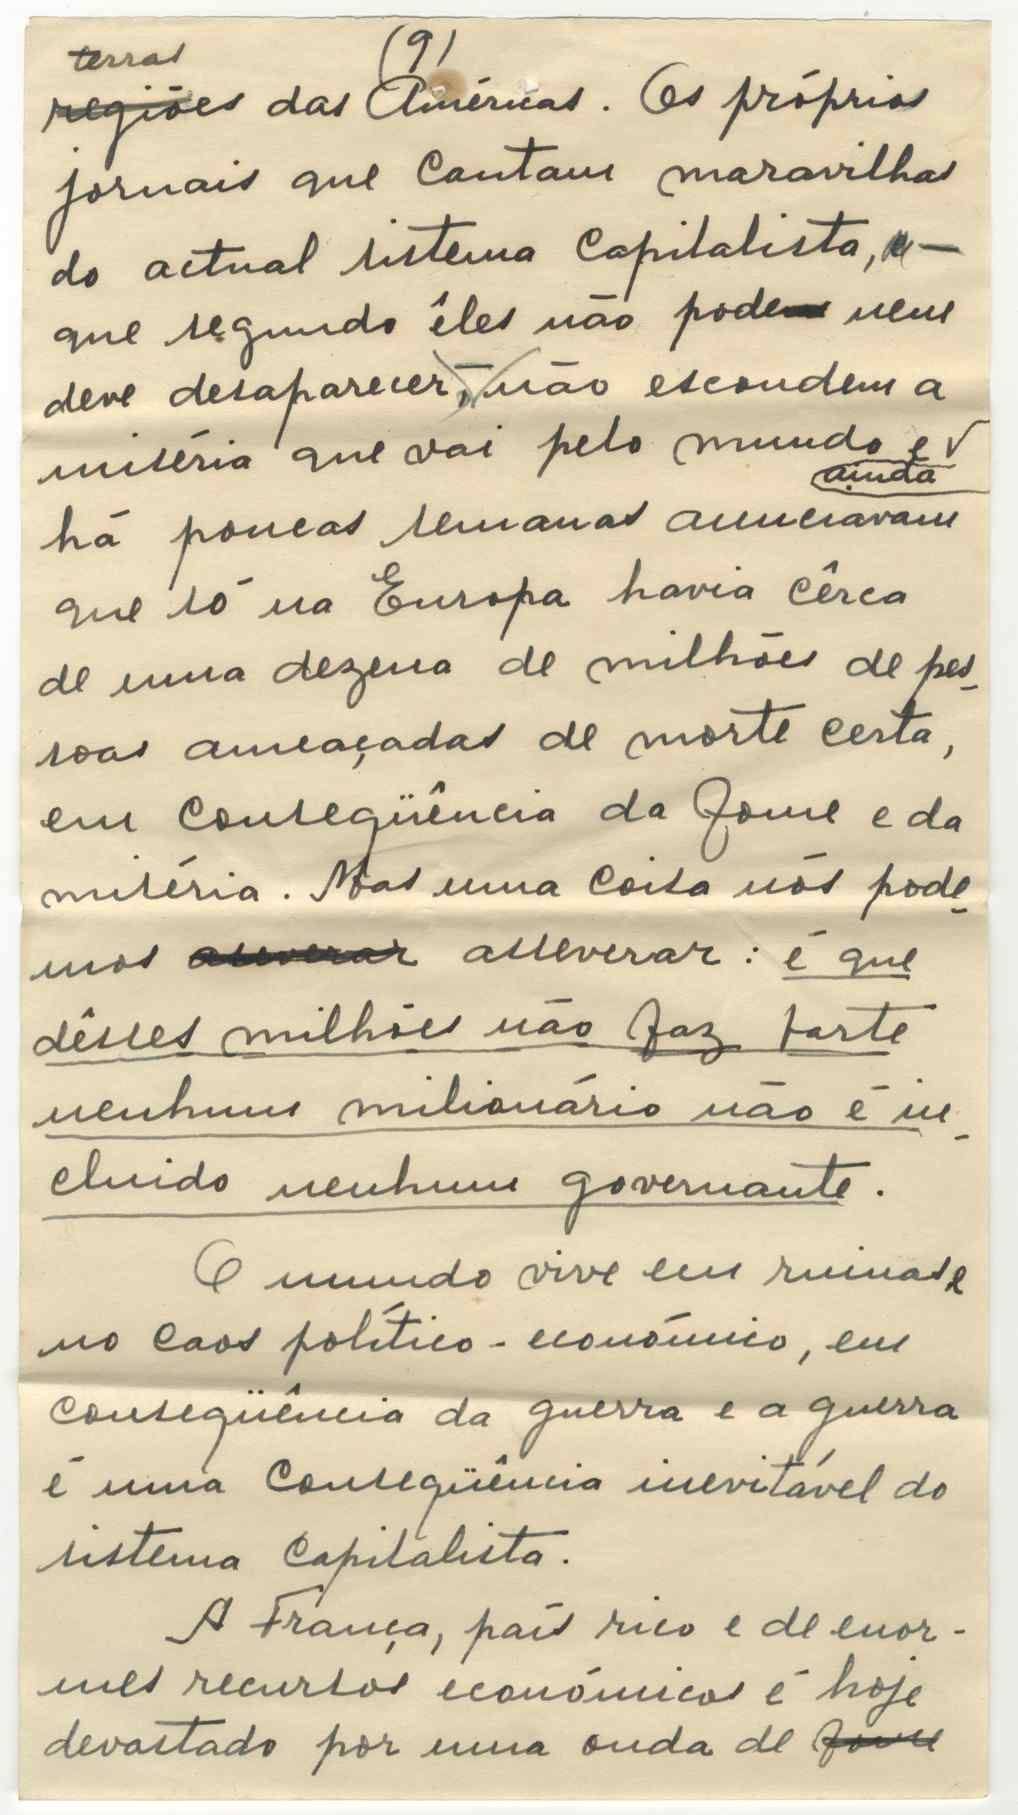 (9)
terras
regiões das Américas. Os próprios
jornais que cantam maravilhas
do actual sistema capitalista, —
que segundo êles não pode nem
deve desaparecer, — não escondem a
miséria que vai pelo mundo e
ainda
há poucas semanas anunciavam
que só na Europa havia cêrca
de uma dezena de milhões de pes-
soas ameaçadas de morte certa,
em conseqüência da fome e da
miséria. Mas uma coisa nós pode-
mos aseverar asseverar: é que
dêsses milhões não faz parte
nenhum milionário não é in-
cluido nenhum governante.
O mundo vive em ruinas e
no caos político-económico, em
conseqüência da guerra e a guerra
é uma conseqüência inevitável do
sistema capitalista.
A França, país rico e de enor-
mes recursos económicos é hoje
devastado por uma onda de fome